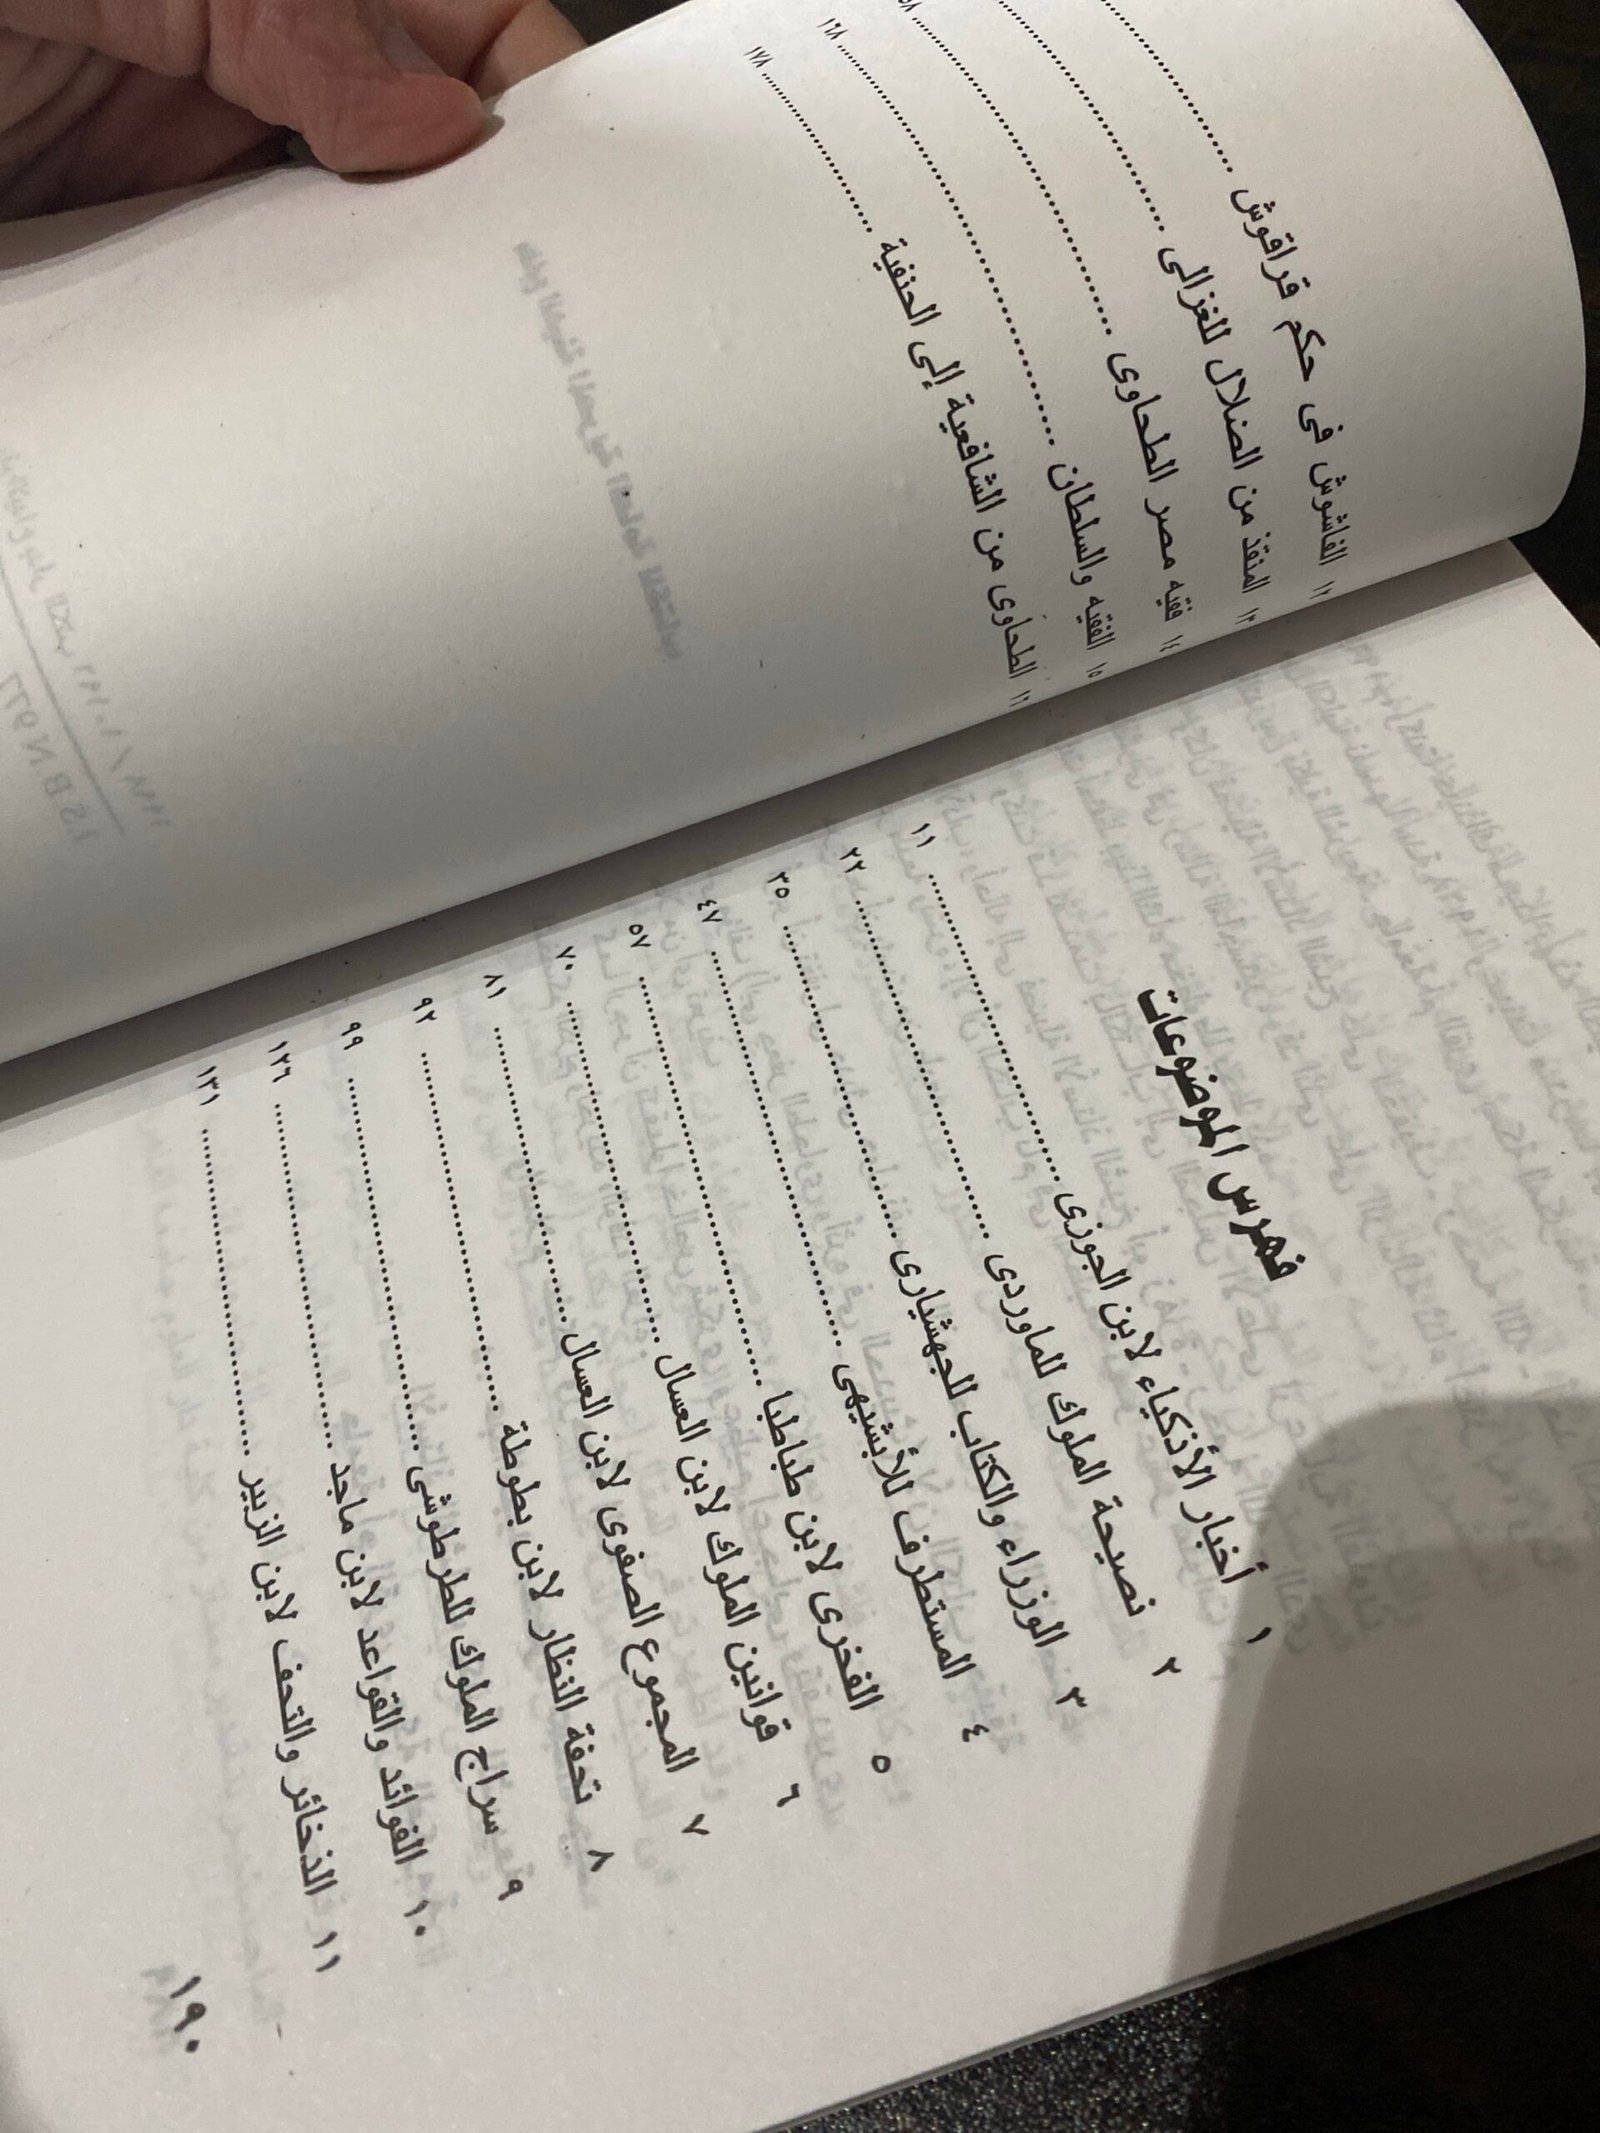 فهرس الموضوعات
١ أخبار الأذكياء لابن الجوزى ........ ١١
٢ نصيحة الملوك للماوردى ........ ٢٢
٣ الوزراء والكتاب للجهشيارى ........ ٣٥
٤ المستطرف للأبشيهى ........ ٤٧
٥ الفخرى لابن طباطبا ........ ٥٧
٦ قوانين الملوك لابن العسال ........ ٧٠
٧ المجموع الصفوى لابن العسال ........ ٨١
٨ تحفة النظار لابن بطوطة ........ ٩٢
٩ سراج الملوك للطرطوشى ........ ٩٩
١٠ الفوائد والقواعد لابن ماجد ........ ١٢٦
١١ الذخائر والتحف لابن الزبير ........ ١٣١
١٩٠
١٢ الفاشوش فى حكم قراقوش ........
١٣ المنقذ من الضلال للغزالى ........
١٤ فقيه مصر الطحاوى ........
١٥ الفقيه والسلطان ........ ١٦٨
١٦ الطحاوى من الشافعية إلى الحنفية ........ ١٧٨